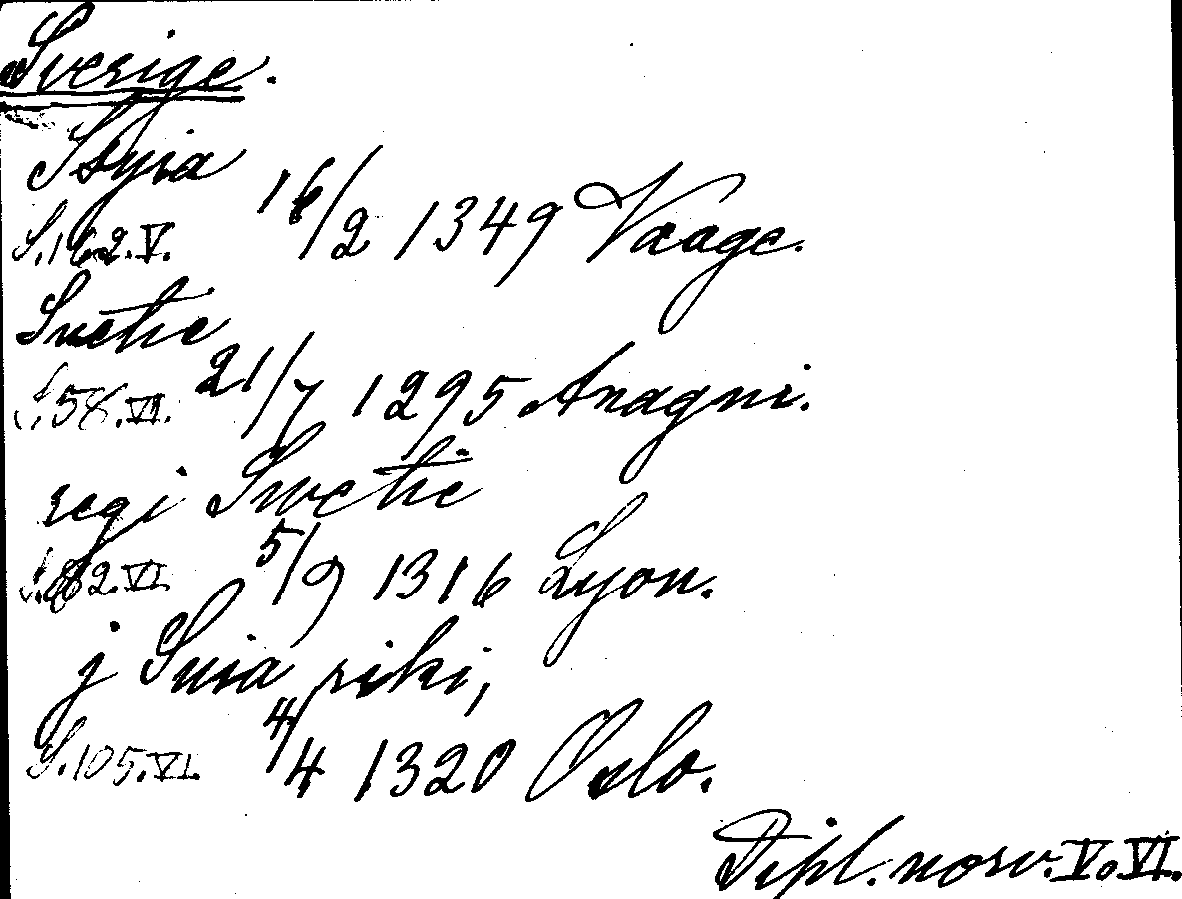 Sverige.
Styia
S.162.V. 16/2 1349 Vaage.
Suetie
S.58.VI. 21/7 1295 Anagni.
regi Swetie
S.82.VI. 5/9 1316 Lyon.
j Suia riki,
S.105.VI. 4/4 1320 Oslo.
Dipl. norv. V. VI.